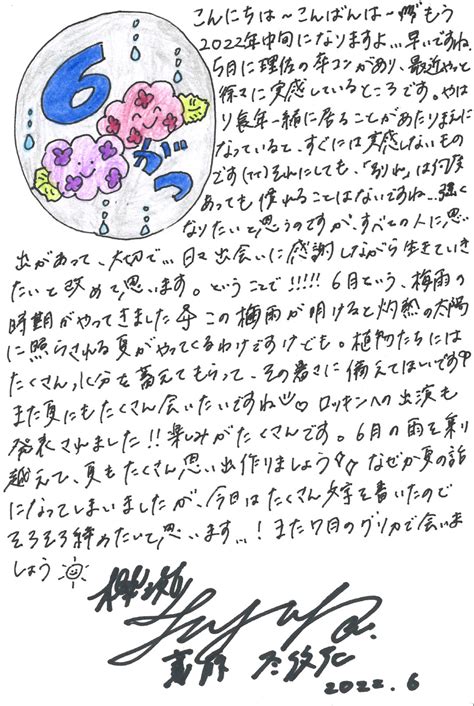 こんにちは～こんばんは～もう
2022年中旬になりますよ...早いですね。
5月に理佐の卒コンがあり、最近やっと
徐々に実感しているところです。やは
り長年一緒に居ることがあたりまえに
なっていると、すぐには実感しないもの
です(TT)それにしても、「別れ」は何度
あっても慣れることはないですね...強く
なりたいと思うのですが、すべての人に思い
出があって、大切で...日々出会いに感謝しながら生きていき
たいと改めて思います。ということで!!!!!6月という、梅雨の
時期がやってきました この梅雨が明けると灼熱の太陽
に照らされる夏がやってくるわけですけども。植物たちには
たくさん水分を蓄えてもらって、その暑さに備えてほしいです
また夏にもたくさん会いたいですね♡ ロッキンへの出演も
発表されました!!楽しみがたくさんです。6月の雨を乗り
越えて、夏もたくさん思い出作りましょう なぜか夏の話
になってしまいましたが、今日はたくさん文字を書いたので
そろそろ締めたいと思います...!また7月のグリカで会いま
しょう
6
がつ
櫻坂
2022.6